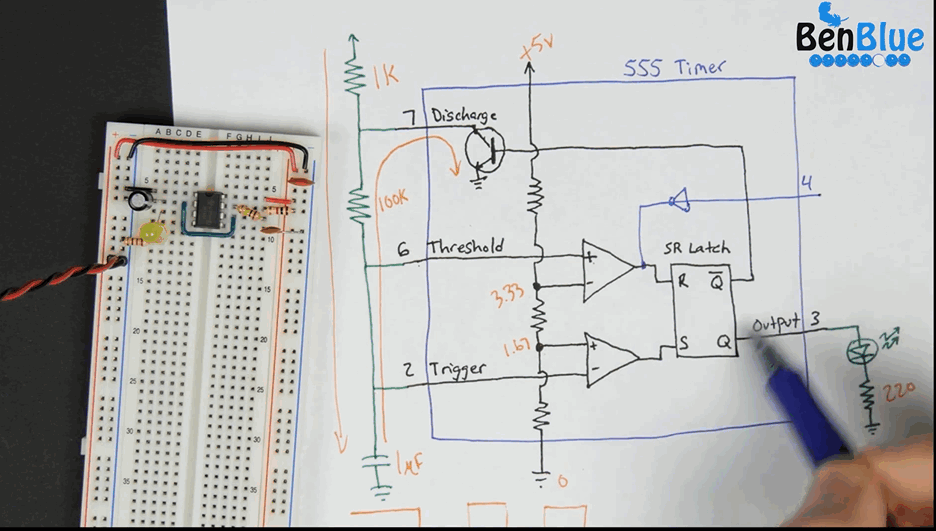 BenBlue
+5V
555 Timer
1K
7 Discharge
100K
4
6 Threshold
SR Latch
R Q̅
3.33
Output 3
1.67
S Q
2 Trigger
220
1µF
0
+ -
+ -
A B C D E F G H I J
5 5
10
15 15
20 20
25 25
30 30
35 35